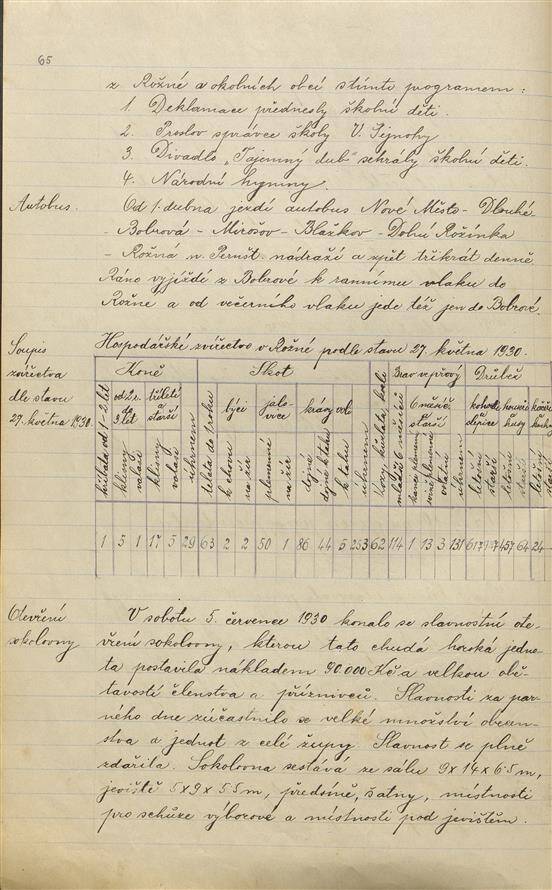 65
z Rožné a okolních obcí s tímto programem:
1. Deklamace přednesly školní děti.
2. Proslov správce školy V. Sejnohy
3. Divadlo "Tajemný dub" sehrály školní děti.
4. Národní hymny.
Autobus.
Od 1. dubna jezdí autobus Nové Město - Dlouhé
- Bobrová - Mirošov - Blazkov - Dolní Rožínka
- Rožná n. Pernšt. nádraží a zpět třikrát denně.
Ráno vyjíždí z Bobrové k rannímu vlaku do
Rožné a od večerního vlaku jede též jen do Bobrové.
Soupis
zvířectva
dle stavu
27. května 1930.
Hospodářské zvířectvo v Rožné podle stavu 27. května 1930.
Koně Skot Brav vepřový Drůbež
hříbata od 1-2 let
od 2 r. do 3 let
klisny
valaši
tříletí a starší
klisny
valaši
úhrnem
telata do roku
býci
k chovu
na žír
jalovice
plemenné
na žír
krávy
dojné
dojné k tahu
voli
k tahu
úhrnem
kozy, kůzlata, kozli
mladší 6 měsíců
6 měsíč. a starší
kanci plemenní
svině plemenné
ostatní
úhrnem
kohouti slepice
letošní
starší
houseři husy
letošní
starší
kačeři kachny
letošní
starší
1 5 1 17 5 29 63 2 2 50 1 86 44 5 253 62 114 1 13 3 131 617 457 64 24
Otevření
sokolovny
V sobotu 5. července 1930 konalo se slavnostní ote-
vření sokolovny, kterou tato chudá horská jedno-
ta postavila nákladem 90.000 Kč a velkou obě-
tavostí členstva a příznivců. Slavnosti za par-
ného dne zúčastnilo se velké množství obecen-
stva a jednot z celé župy. Slavnost se plně
zdařila. Sokolovna sestává ze sálu 9x14x6·5 m,
jeviště 5x9x5·5 m, předsíně, šatny, místnosti
pro schůze výborové a místnosti pod jevištěm.